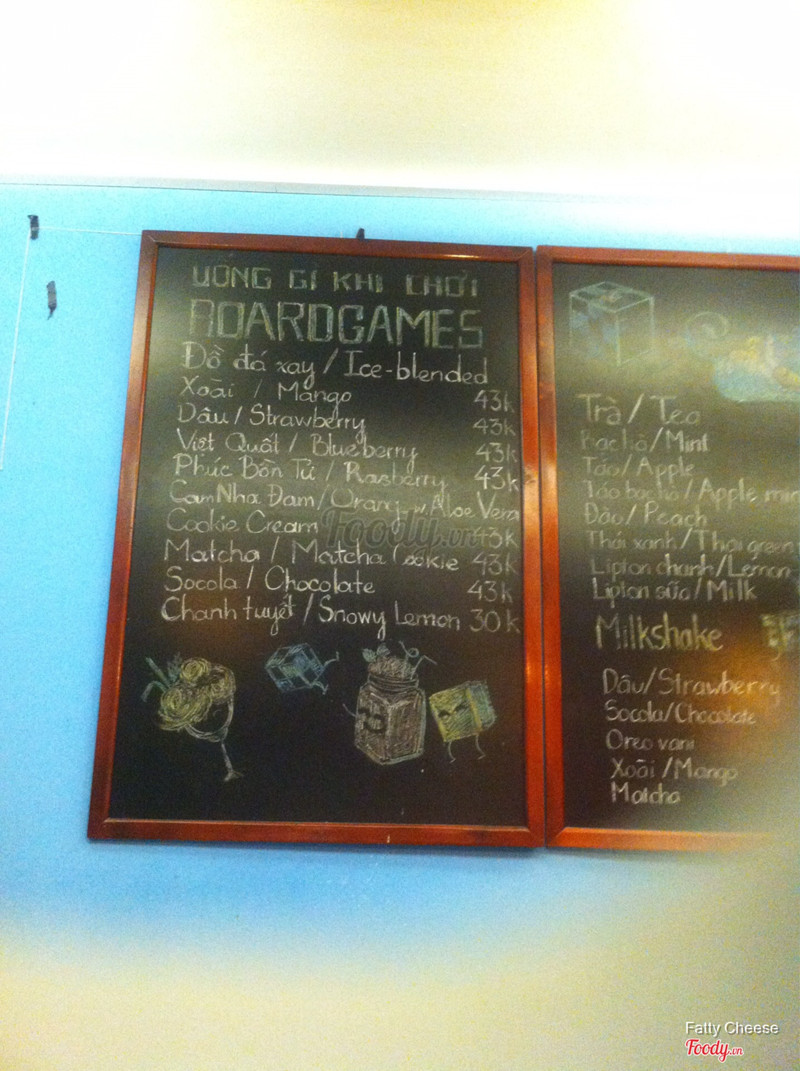 UỐNG GÌ KHI CHƠI
BOARDGAMES
Đồ đá xay / Ice-blended
Xoài / Mango 43k
Dâu / Strawberry 43k
Việt Quất / Blueberry 43k
Phúc Bồn Tử / Rasberry 43k
Cam Nha Đam / Orang w. Aloe Vera
Cookie Cream 43k
Matcha / Matcha Cookie 43k
Socola / Chocolate 43k
Chanh tuyết / Snowy Lemon 30k
Trà / Tea
Bạc hà / Mint
Táo / Apple
Táo bạc hà / Apple min
Đào / Peach
Thái xanh / Thai green
Lipton chanh / Lemon
Lipton sữa / Milk
Milkshake
Dâu / Strawberry
Socola / Chocolate
Oreo vani
Xoài / Mango
Matcha
Foody.vn
Fatty Cheese
Foody.vn